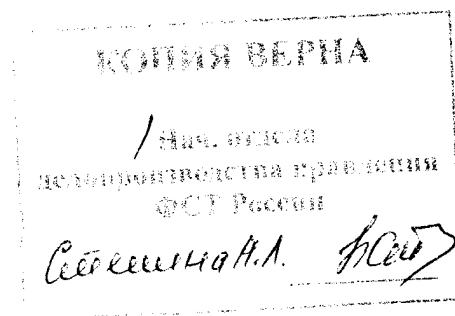 КОПИЯ ВЕРНА
Нач. отдела
делопроизводства правления
ФСТ России
Н.Л.